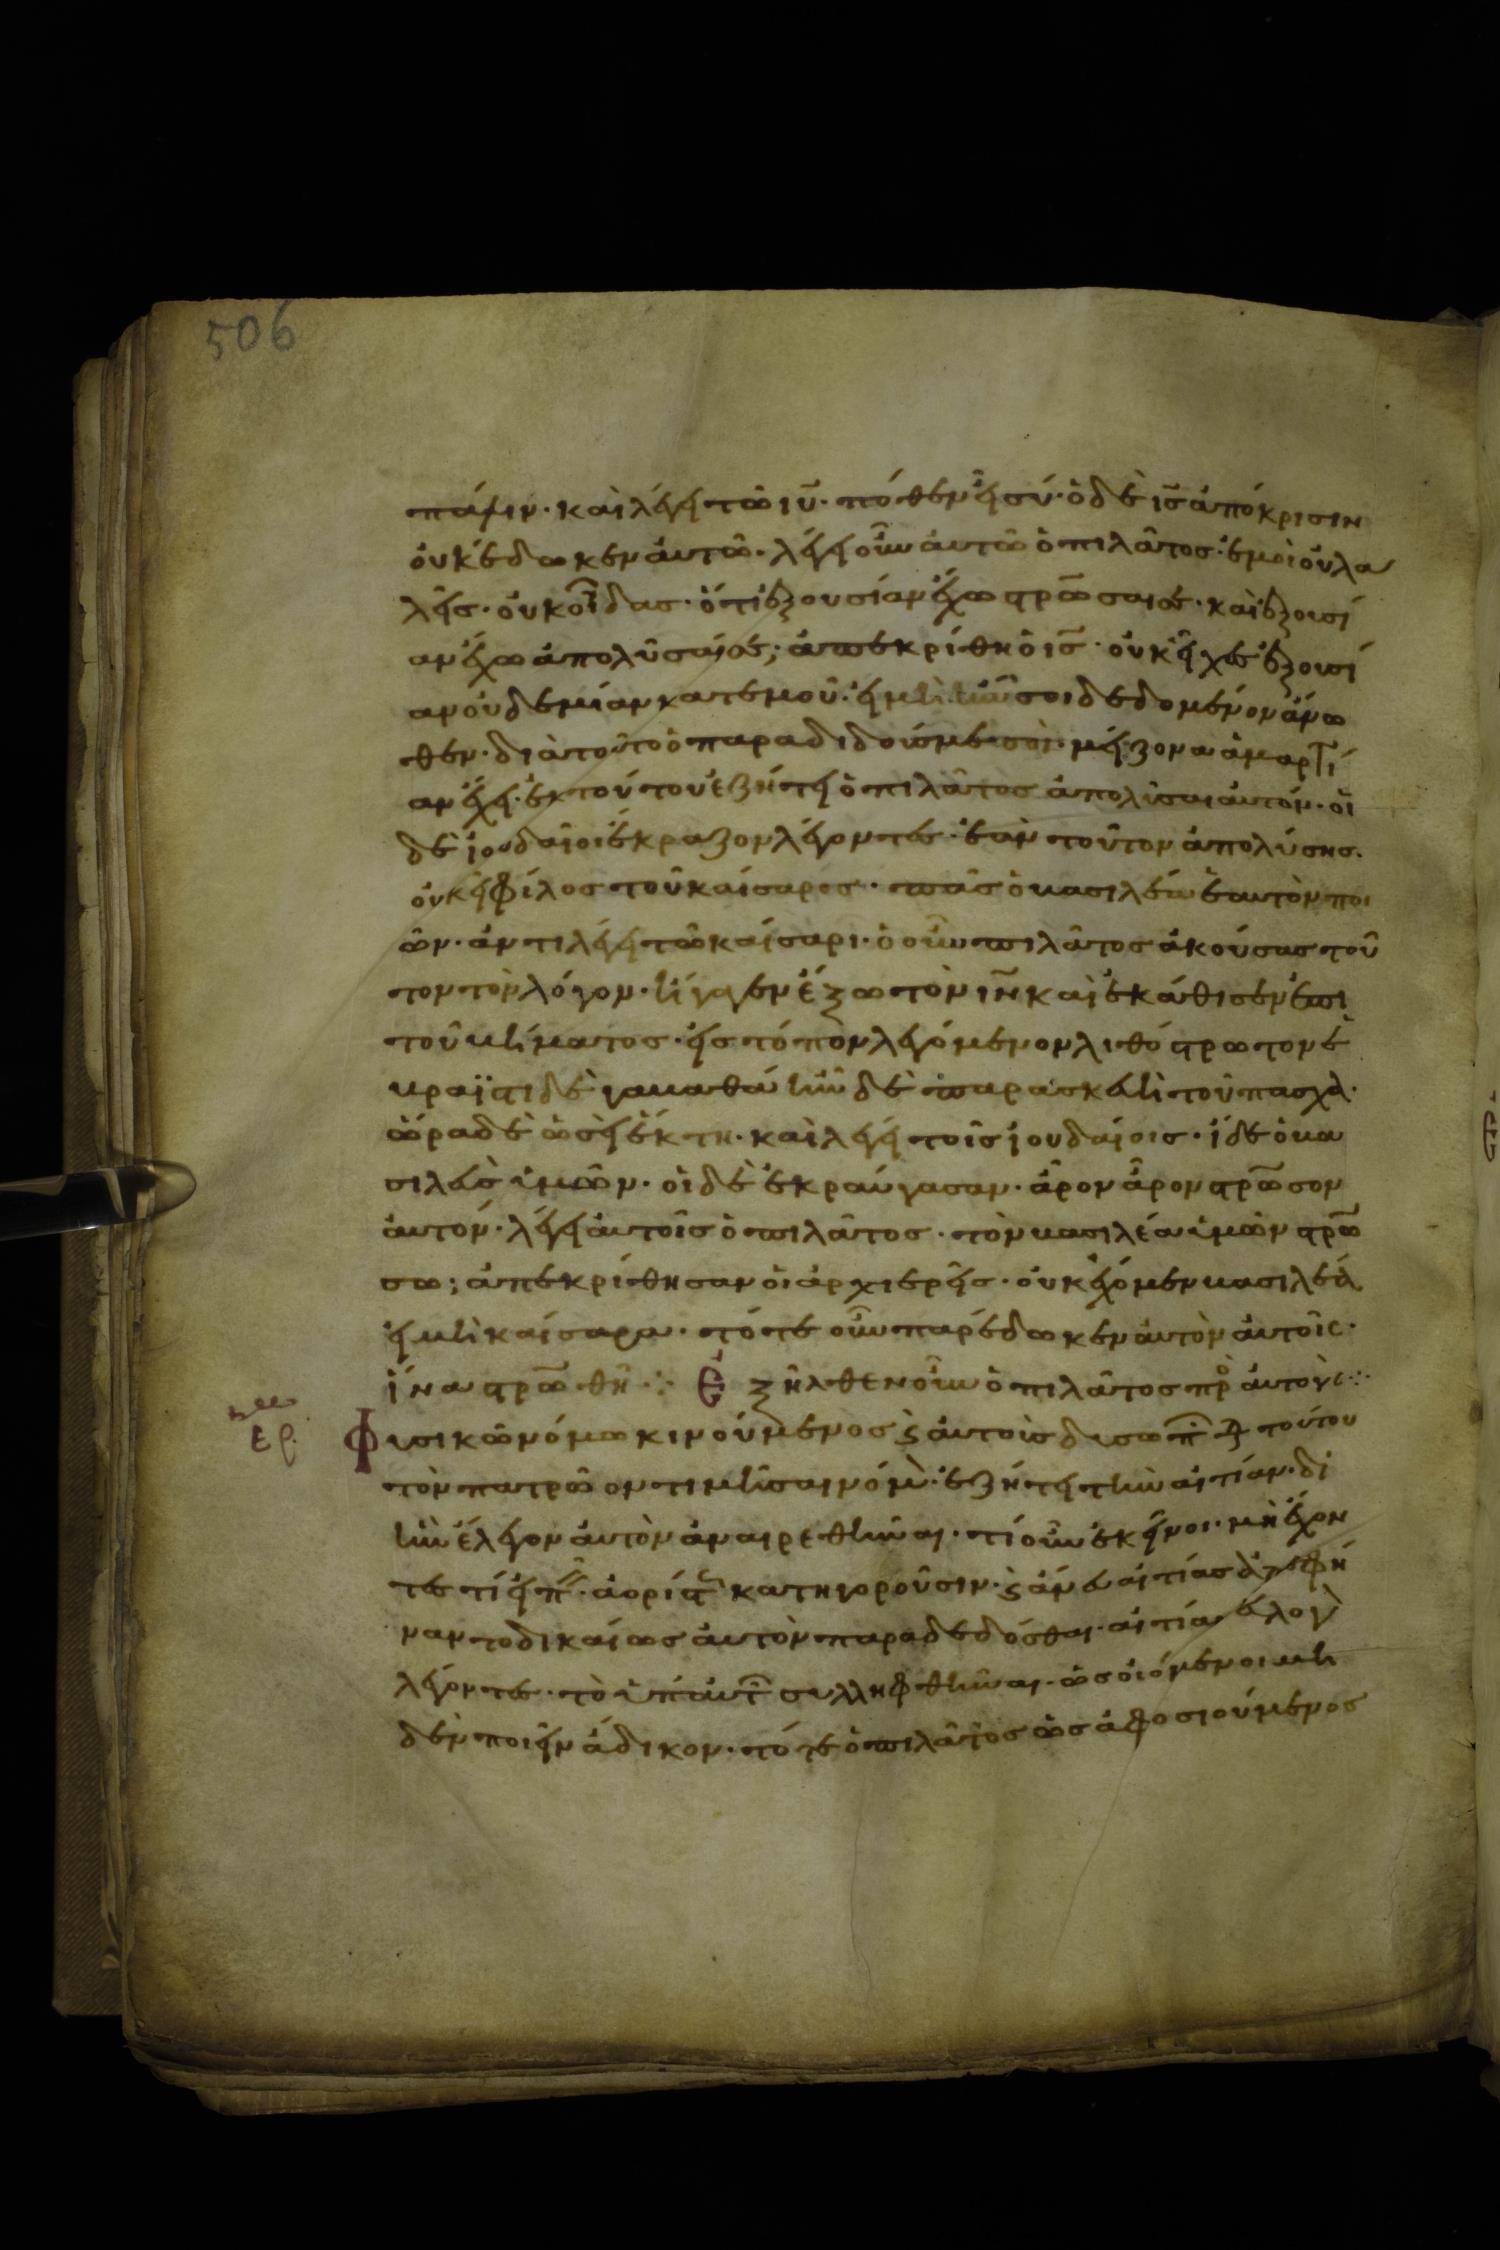 506
πάλιν· καὶ λέγει τῶ ιυ· πόθεν εἶ σύ· ὁ δὲ ις ἀπόκρισιν
οὐκ ἔδωκεν αὐτῶ· λέγει οὖν αὐτῶ ὁ πιλᾶτος· ἐμοὶ οὐ λα
λεῖς· οὐκ οἶδας· ὅτι ἐξουσίαν ἔχω στρῶσαι σέ· καὶ ἐξουσί
αν ἔχω ἀπολῦσαί σέ; ἀπεκρίθη ὁ ις· οὐκ εἶχες ἐξουσί
αν οὐδεμίαν κατ ἐμοῦ· εἰ μὴ ἦν σοι δεδομένον ἄνω
θεν· διὰ τοῦτο ὁ παραδιδούς με σοὶ· μείζονα ἁμαρτί
αν ἔχει· ἐκ τούτου ἐζήτει ὁ πιλᾶτος ἀπολῦσαι αὐτόν· οἱ
δὲ ἰουδαῖοι ἔκραζον λέγοντες· ἐὰν τοῦτον ἀπολύσης·
οὐκ εἶ φίλος τοῦ καίσαρος· πᾶς ὁ βασιλέα ἑαυτὸν ποι
ῶν· ἀντιλέγει τῶ καίσαρι· ὁ οὖν πιλᾶτος ἀκούσας τοῦ
τον τὸν λόγον· ἤγαγεν ἔξω τὸν ιν καὶ ἐκάθισεν ἐπι
τοῦ βήματος· εἰς τόπον λεγόμενον λιθόστρωτον ἑ
βραϊστι δὲ γαβαθά ἦν δὲ παρασκευὴ τοῦ πασχα·
ὥρα δὲ ὡσεὶ ἕκτη· καὶ λέγει τοῖς ἰουδαίοις· ἴδε ὁ βα
σιλεὺς ὑμῶν· οἱ δὲ ἐκραύγασαν· ἆρον ἆρον στρωσον
αὐτόν· λέγει αὐτοῖς ὁ πιλᾶτος· τὸν βασιλέα ὑμῶν στρω
σω; ἀπεκρίθησαν οἱ ἀρχιερεῖς· οὐκ ἔχομεν βασιλέα
εἰ μὴ καίσαρα· τότε οὖν παρέδωκεν αὐτὸν αὐτοῖς·
ἵνα στρωθῆ ⁘ Ἐξῆλθεν οὖν ὁ πιλᾶτος πρὸ αὐτοὺς ⁘
ερ
Φυσικῶ νόμω κινούμενος
τὸν πατρῶον τιμῆσαι νόμ· ἐζήτει τὴν αἰτίαν· δι
ἣν ἔλεγον αὐτὸν ἀναιρεθῆναι· τί οὖν ἐκεῖνοι· μὴ ἔχον
τες τί εἰπ· ἀορίστ κατηγοροῦσιν· ϛ ἄνευ αἰτίας
ναντο δικαίως αὐτὸν παραδεδόσθαι· αἰτίαν ἄλογ
λέγοντες· τὸ ὑπ αὐτ συλληφθῆναι· ὡς οἰόμενοι μη
δὲν ποιεῖν ἄδικον· τότε ὁ πιλᾶτος ὡς ἀφοσιούμενος